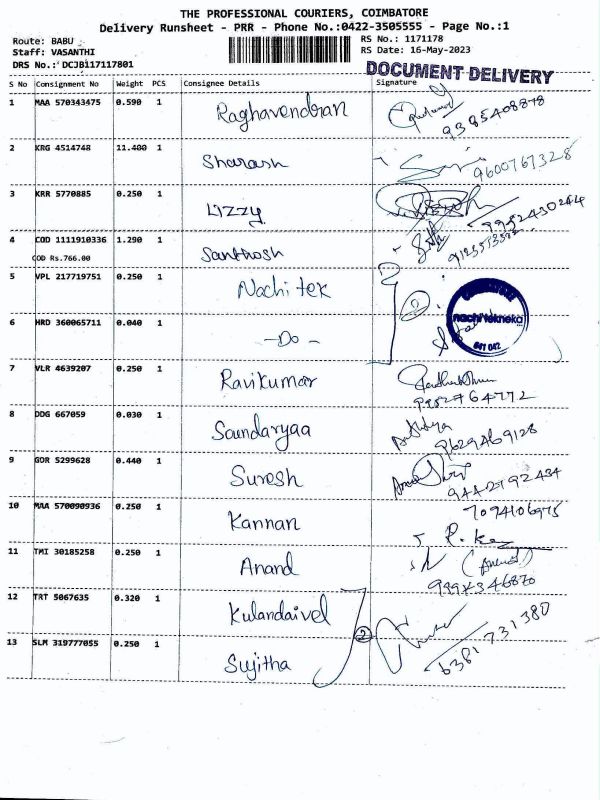 THE PROFESSIONAL COURIERS, COIMBATORE
Delivery Runsheet - PRR - Phone No.:0422-3505555 - Page No.:1
Route: BABU
RS No.: 1171178
Staff: VASANTHI
RS Date: 16-May-2023
DRS No.: DCJB117117801
DOCUMENT DELIVERY
S No Consignment No Weight PCS Consignee Details Signature
1 MAA 570343475 0.590 1 Raghavendran
9385408878
2 KRG 4514748 11.400 1 Sharash 9600767328
3 KRR 5770885 0.250 1 Lizzy
9952430244
4 COD 1111910336 1.290 1 Santhosh
COD Rs.766.00
5 VPL 217719751 0.250 1 Nachi tek 2
nachi tekneka
641 042
6 HRD 360065711 0.040 1 - Do -
7 VLR 4639207 0.250 1 Ravikumar
9952764772
8 DDG 667059 0.030 1 Soundaryaa
9629469128
9 GOR 5299628 0.440 1 Suresh
9442792434
10 MAA 570090936 0.250 1 Kannan 7094106975
11 TMI 30185258 0.250 1 Anand (Anand)
12 TRT 5067635 0.320 1 Kulandaivel
2 6381 731380
13 SLM 319777055 0.250 1 Sujitha